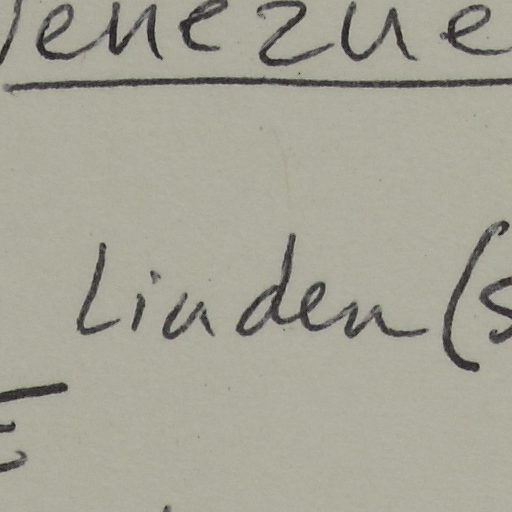 Venezue
Linden (s
E